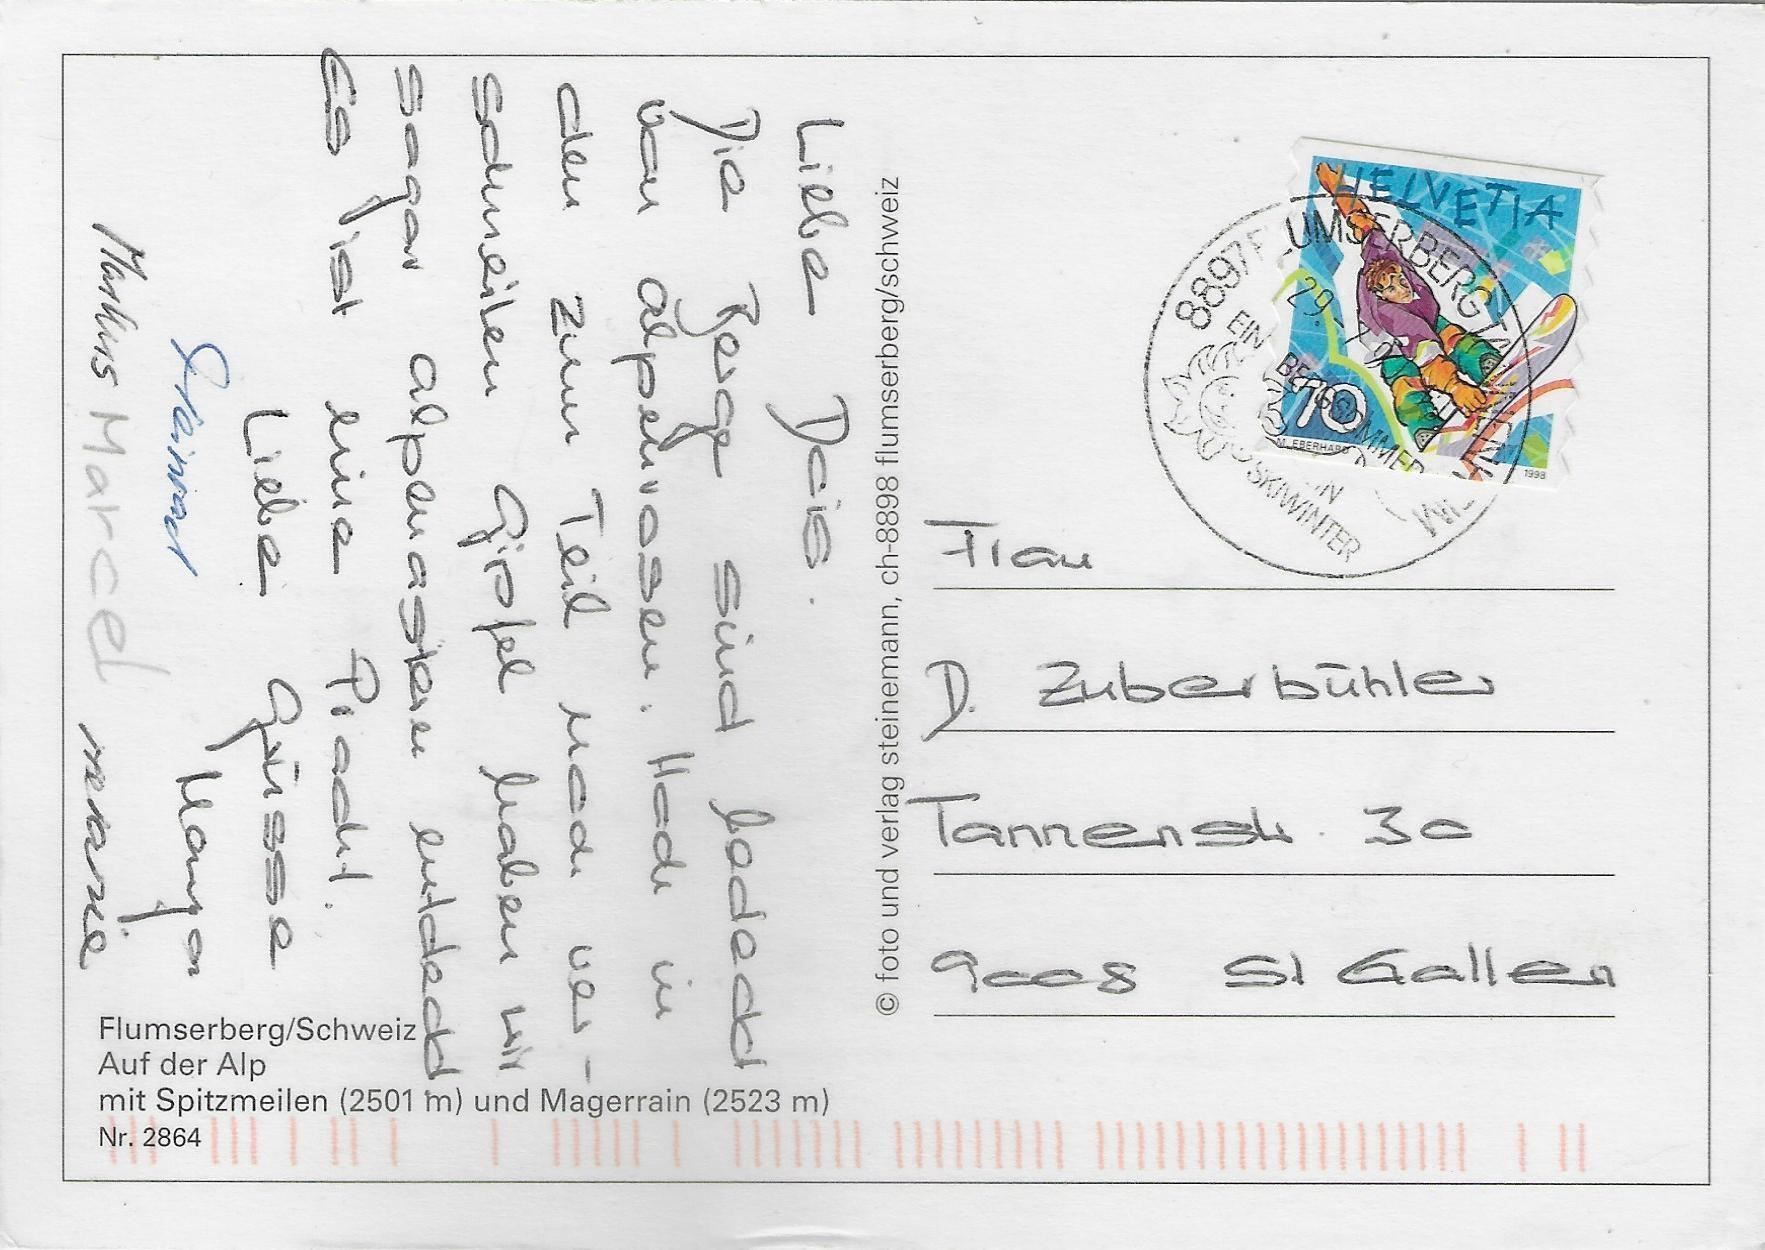 Liebe Doris.
Die Berge sind bedeckt
von alpenrosen. Hoch in
den zum Teil noch ver-
schneiten Gipfel haben wir
sogar alpenastern entdeckt
Es ist eine Pracht.
Liebe Grüsse
Manya
Markus Marcel
© foto und verlag steinemann, ch-8898 flumserberg/schweiz
HELVETIA
70
M. EBERHARD
1998
8897 FLUMSERBERG TANNENHEIM
29.
EIN BERGSOMMER
EIN SKIWINTER
Frau
D. Zuberbühler
Tannenstr. 3c
9008 St Gallen
Flumserberg/Schweiz
Auf der Alp
mit Spitzmeilen (2501 m) und Magerrain (2523 m)
Nr. 2864